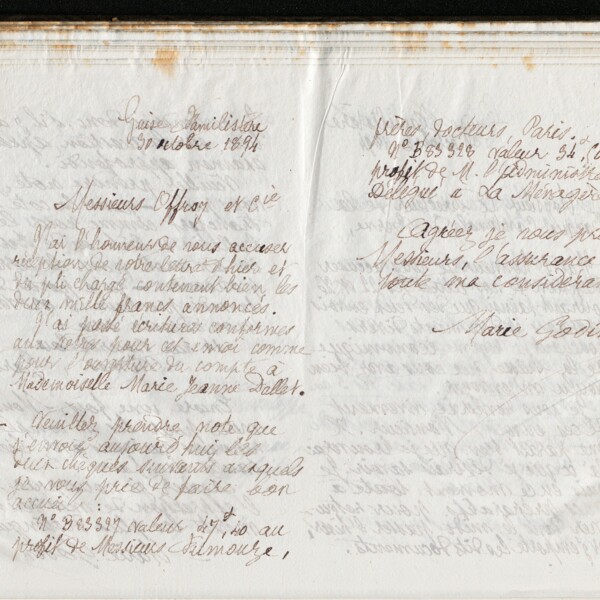 Guise Familistère
30 octobre 1894
Messieurs Offroy et Cie
J'ai l'honneur de vous accuser
réception de votre lettre d'hier et
du pli chargé contenant bien les
deux mille francs annoncés.
J'ai passé écritures conformes
aux vôtres pour cet envoi comme
pour l'ouverture du compte à
Mademoiselle Marie Jeanne Dallet.
Veuillez prendre note que
j'envoie aujourd'hui les
deux chèques suivants auxquels
je vous prie de faire bon
accueil :
N° B83327 valeur 47f,40 au
profit de Messieurs Fumouze,
frères, docteurs, Paris.
N° B83328 valeur 34f,
profit de M. l'Administra
Délégué à La Ménagère
Agréez je vous prie
Messieurs, l'assurance
toute ma considérat
Marie Godin